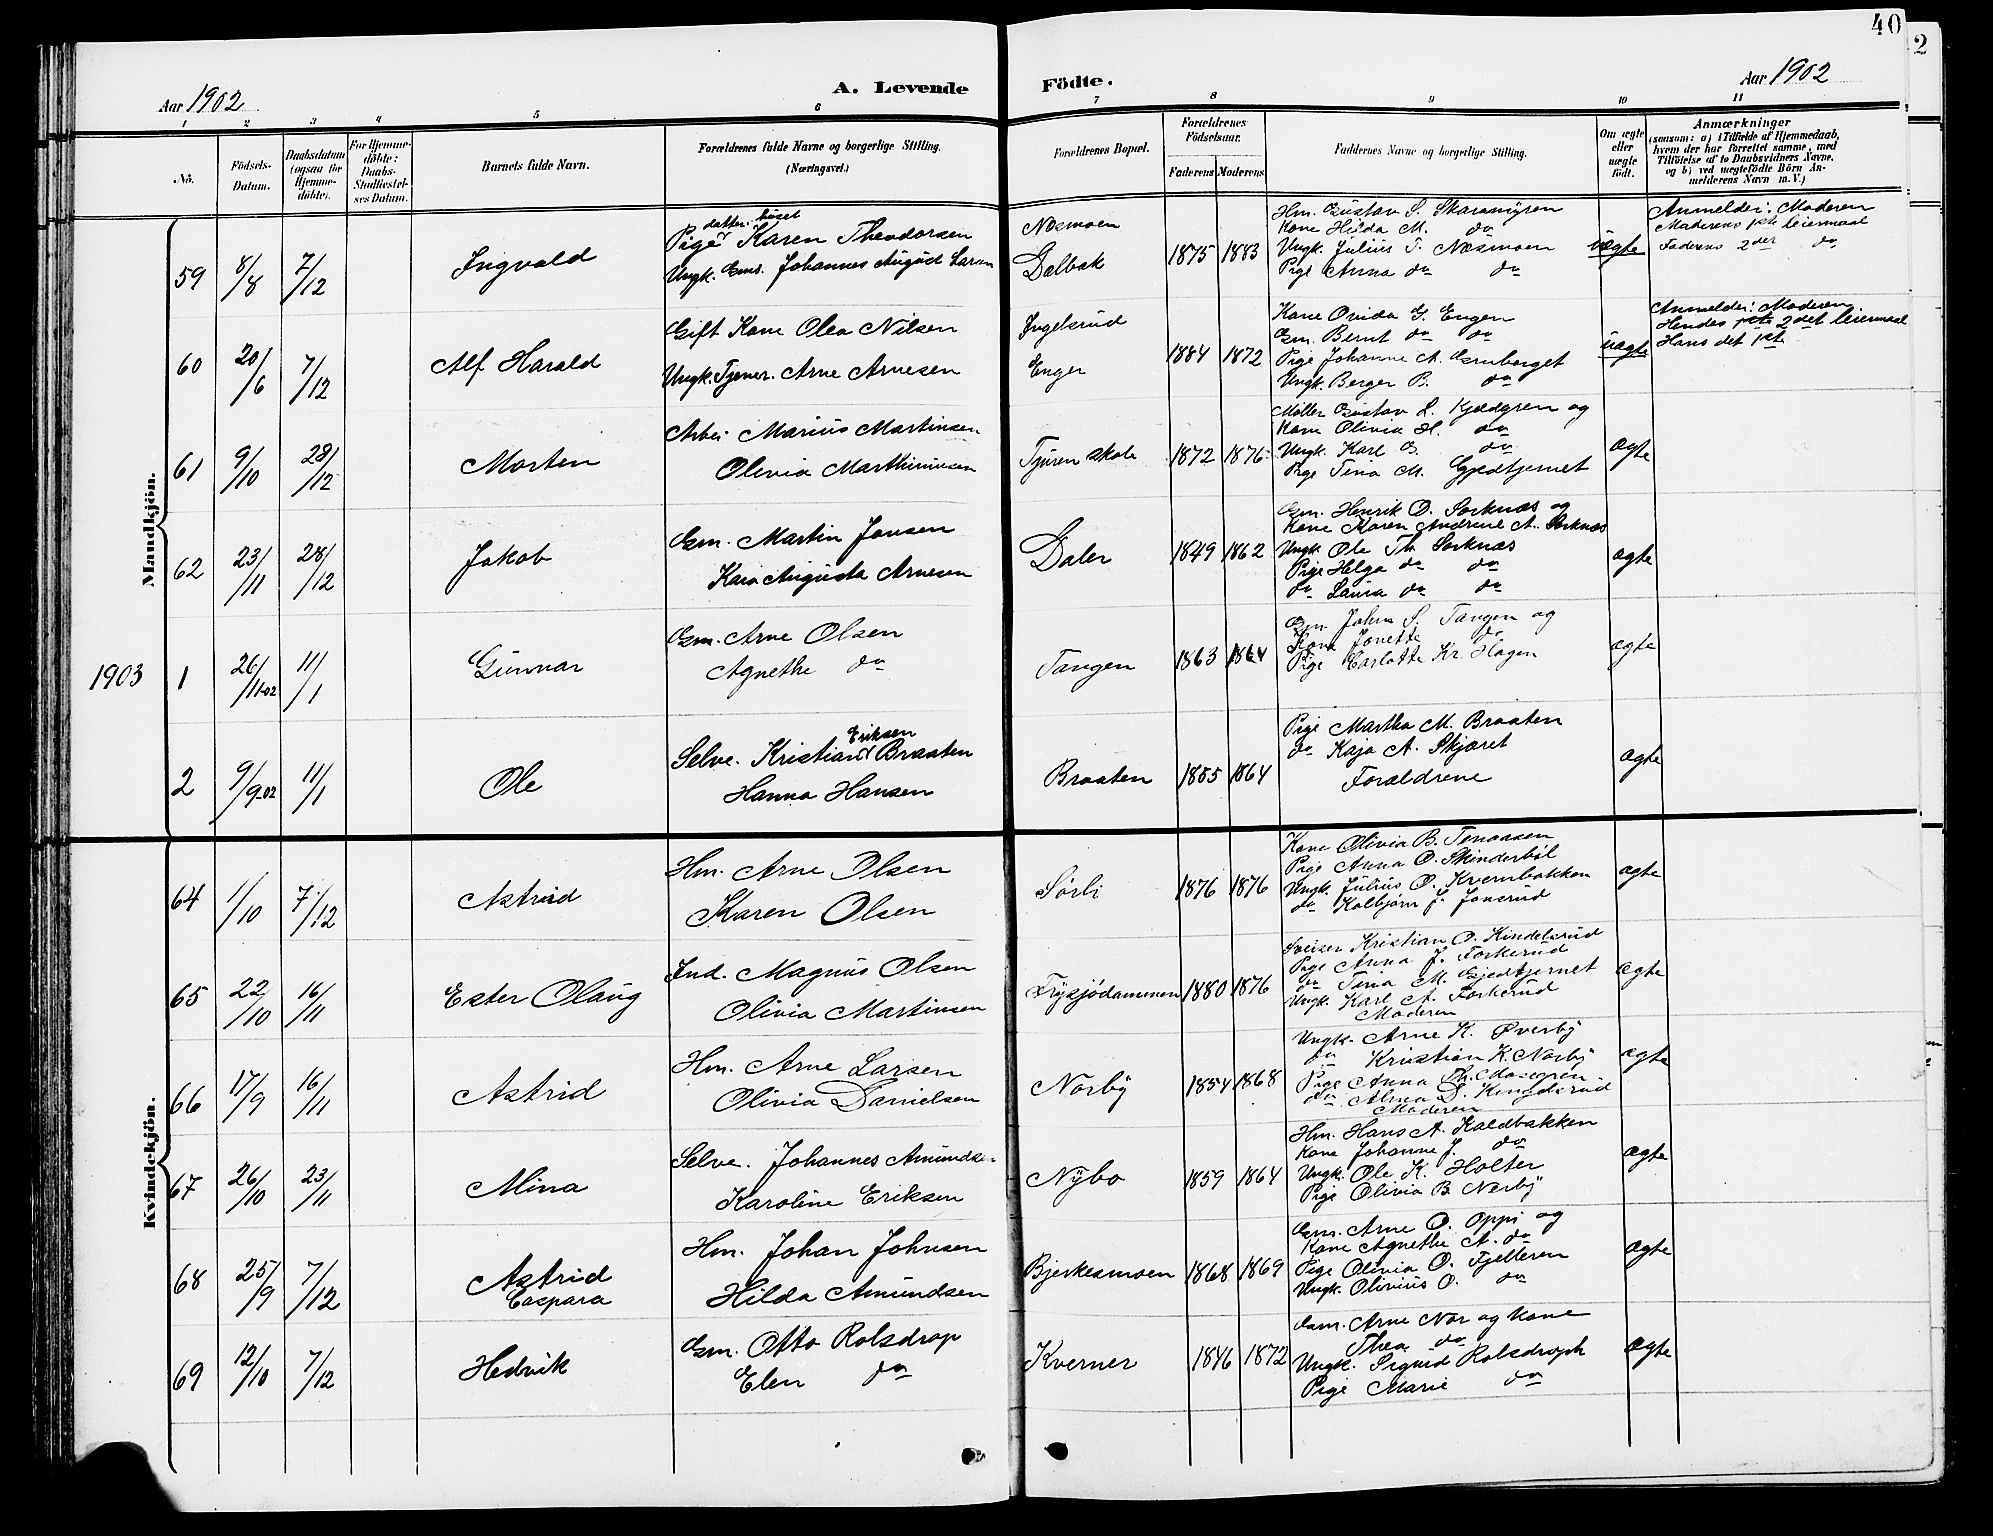 40
2
Aar 1902
A. Levende
Födte.
Aar 1902
1 2 3 4 5 6 7 8 9 10 11
No.
Födsels-
Datum.
Daabsdatum
(ogsaa for
Hjemme-
döbte).
For Hjemme-
döbte:
Daabs-
Stadfæstel-
ses Datum.
Barnets fulde Navn.
Forældrenes fulde Navne og borgerlige Stilling.
(Næringsvei.)
Forældrenes Bopæl.
Forældrenes
Födselsaar.
Faderens Moderens
Faddernes Navne og borgerlige Stilling.
Om ægte
eller
uægte
födt.
Anmærkninger
(saasom: a) i Tilfælde af Hjemmedaab,
hvem der har forrettet samme, med
Tilföielse af to Daabsvidners Navne,
og b) ved uægtefödte Börn An-
melderens Navn m. V.)
Mandkjön.
59 8/8 7/12 Ingvald
datter huset
Pige Karen Theodorsen
Ungk. Gms. Johannes August Larsen
Næsmoen
Dælbak
1875 1883
Hm. Gustav S. Skaramyren
Kone Hilda M. do
Ungk. Julius T. Næsmoen
Pige Anna do do
uægte
Anmelder: Moderen
Moderens 1ste leiermaal
Faderens 2det do
60 20/6 7/12 Alf Harald
Gift Kone Olea Nilsen
Ungk. Tjener. Arne Arnesen
Ingelsrud
Enger
1884 1872
Kone Ovida G. Engen
Gm. Bernt do do
Pige Johanne A. Grnberget
Ungk. Berger B. do
uægte
Anmelder: Moderen
Hendes 2det leiermaal
Hans det 1ste
61 9/10 28/12 Morten
Arbei. Marius Martinsen
Olivia Marthinussen
Tjuren skole
1872 1876
Møller Gustav L. Kjædgren og
Kone Olivia H. do
Ungk. Karl G. do
Pige Tina M. Gjedtjernet
ægte
62 23/11 28/12 Jakob
Gm. Martin Jonsen
Kaia Augusta Arnesen
Daler
1849 1862
Gm. Henrik O. Sorknæs og
Kone Karen Andrine A. Sorknæs
Ungk. Ole Th. Sorknæs
Pige Helga do do
do Laura do do
ægte
1903 1 26/11-02 11/1 Gunnar
Gm. Arne Olsen
Agnethe do
Tangen
1863 1864
Gm. Johan S. Tangen og
Kona Jonette do
Pige Carlotte Kr. Hagen
ægte
2 9/9-02 11/1 Ole
Eriksen
Selve. Kristian Braaten
Hanna Hansen
Braaten
1855 1864
Pige Martha M. Braaten
do Kaja A. Skjæret
Forældrene
ægte
Kvindekjön.
64 1/10 7/12 Astrid
Hm. Arne Olsen
Karen Olsen
Sørli
1876 1876
Kone Olivia B. Tenaasen
Pige Anna O. Skinderböl
Ungk. Julius O. Kvernbakken
do Kolbjørn J. Jonsrud
ægte
65 22/10 16/11 Ester Olaug
Ind. Magnus Olsen
Olivia Martinsen
Frysjödammen
1880 1876
Sveiser Kristian O. Kindelsrud
Pige Anna J. Forkerud
do Tina M. Gjedtjernet
Ungk. Karl A. Forkerud
Moderen
ægte
66 17/9 16/11 Astrid
Hm. Arne Larsen
Olivia Danielsen
Norby
1854 1868
Ungk. Arne K. Øverby
do Kristian K. Norby
Pige Anna Th.
do Alma D. Kindelsrud
Moderen
ægte
67 26/10 23/11 Mina
Selve. Johannes Amundsen
Karoline Eriksen
Nybo
1859 1864
Hm. Hans A. Kaldbakken
Kone Johanne J. do
Ungk. Ole K. Holter
Pige Olivia B. Nærby
ægte
68 25/9 7/12 Astrid
Caspara
Hm. Johan Johnsen
Hilda Amundsen
Bjerkesmoen
1868 1869
Gm. Arne O. Oppi og
Kone Agnethe A. do
Pige Olivia O. Fjelleren
Ungk. Olivius O. do
ægte
69 12/10 7/12 Hedvik
Gm. Otto Rolsdrop
Elen do
Kverner
1846 1872
Gam. Arne Nor og Kone
Thea do
Ungk. Sigurd Rolsdroph
Pige Marie do
ægte